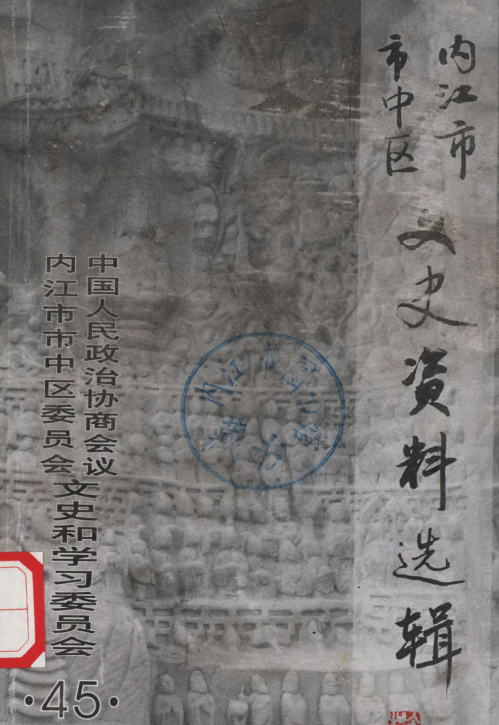 内江市
市中区
文史资料选辑
中国人民政治协商会议
内江市市中区委员会
文史和学习委员会
·45·